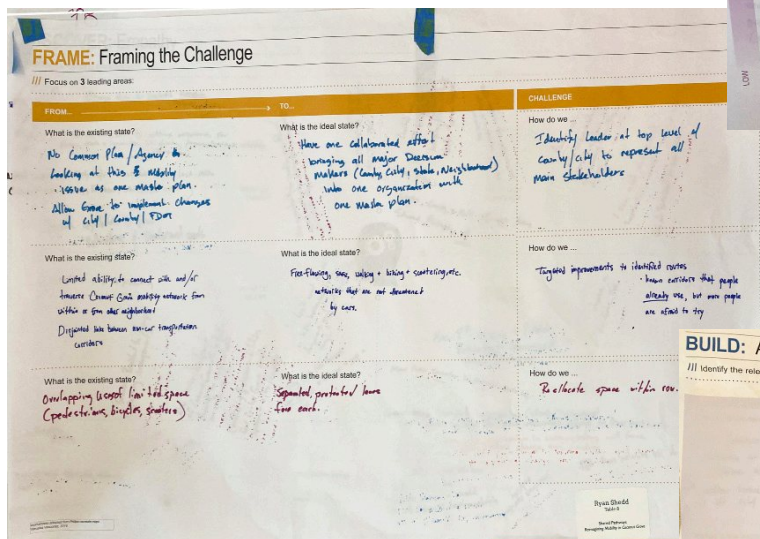 FRAME: Framing the Challenge
/// Focus on 3 leading areas:
FROM...
TO...
CHALLENGE
What is the existing state?
No Common Plan / Agency
Looking at this & mobility
issue as one master plan.
Allow Grove to implement changes
w/ City / County / FDOT
What is the ideal state?
Have one collaborated effort
bringing all major Decision
makers (County, City, State, Neighborhood)
into one organization with
one master plan.
How do we ...
Identify Leader at top level of
county/city to represent all
main stakeholders
What is the existing state?
Limited ability to connect with and/or
traverse Coconut Grove mobility network from
within or from other neighborhood
Disjointed links between non-car transportation
corridors
What is the ideal state?
Free-flowing, safe, walking + biking + scootering, etc.
networks that are not threatened
by cars.
How do we ...
Targeted improvements to identified routes
· known corridors that people
already use, but more people
are afraid to try
What is the existing state?
Overlapping uses of limited space
(pedestrians, bicycles, scooters)
What is the ideal state?
Separated, protected lanes
for each.
How do we ...
Reallocate space within row.
Ryan Shedd
Table 8
Shared Pathways
Reimagining Mobility in Coconut Grove
LOW
BUILD: A
/// Identify the rele